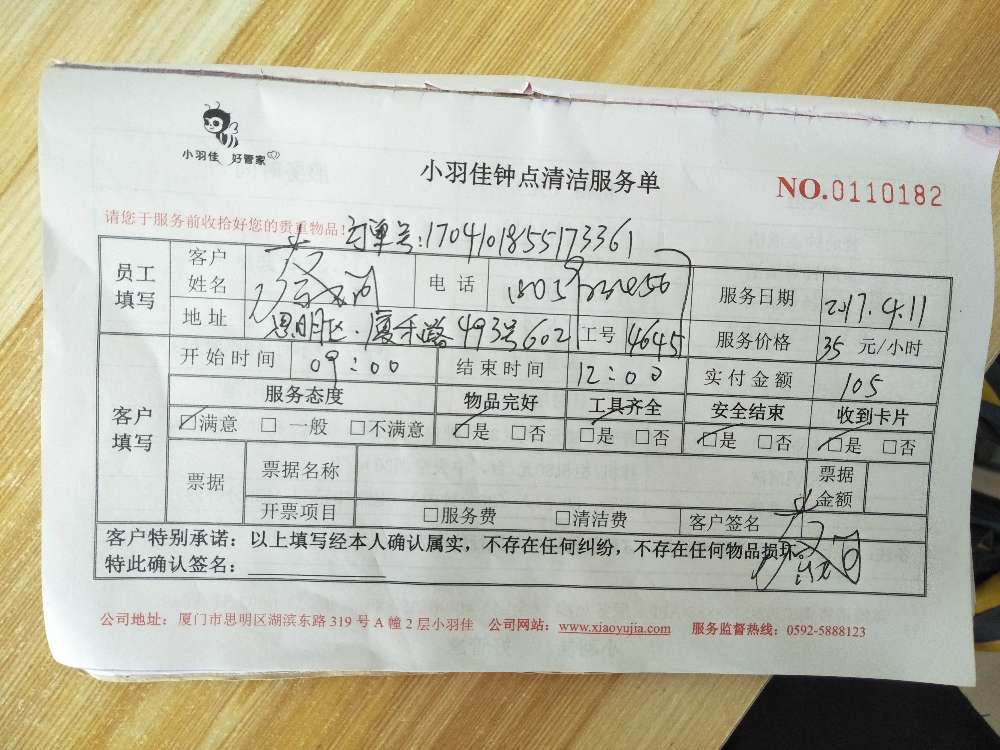 小羽佳 好管家
小羽佳钟点清洁服务单
NO.0110182
请您于服务前收拾好您的贵重物品!
订单号:1704101855173361
员工填写 客户姓名 电话 服务日期 2017.4.11
地址 思明区 493号602 工号 4645 服务价格 35 元/小时
客户填写 开始时间 09:00 结束时间 12:00 实付金额 105
服务态度 物品完好 工具齐全 安全结束 收到卡片
☑满意 □ 一般 □不满意 ☑是 □否 ☑是 □否 ☑是 □否 ☑是 □否
票据 票据名称 票据金额
开票项目 □服务费 □清洁费 客户签名
客户特别承诺:以上填写经本人确认属实,不存在任何纠纷,不存在任何物品损坏。
特此确认签名:
公司地址:厦门市思明区湖滨东路 319 号 A 幢 2 层小羽佳 公司网站:www.xiaoyujia.com 服务监督热线:0592-5888123